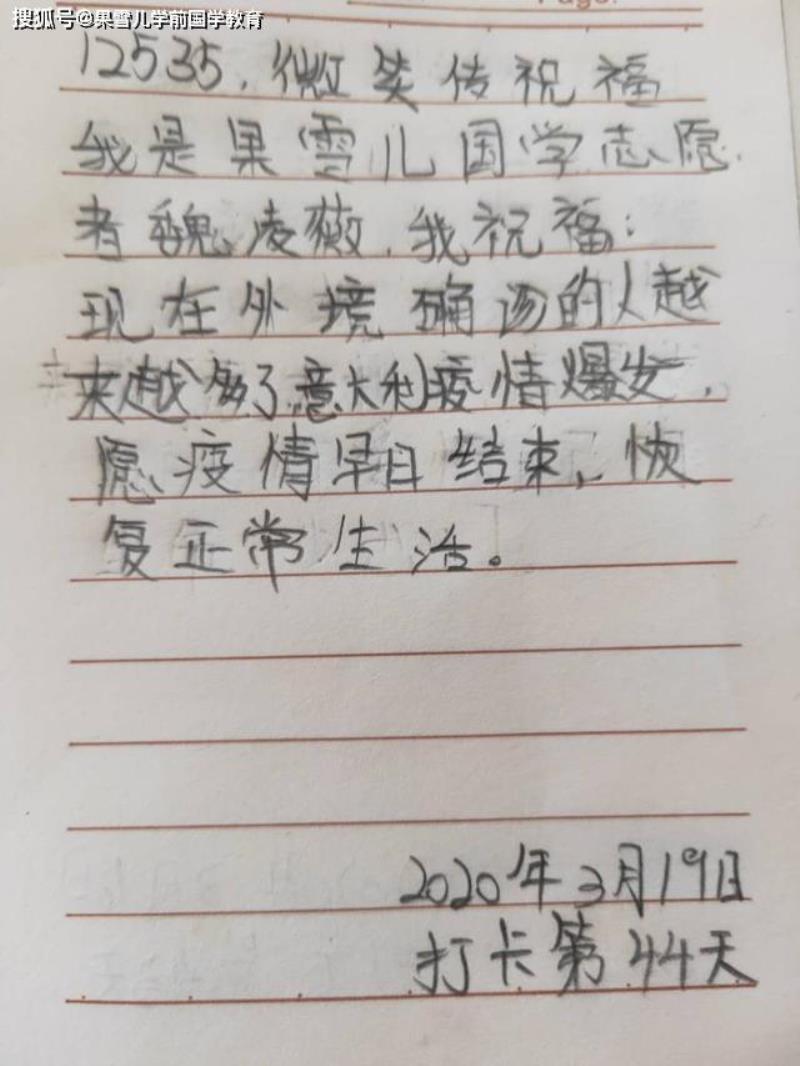 搜狐号@果雪儿学前国学教育
12535，微笑传祝福
我是果雪儿国学志愿
者魏凌薇，我祝福：
现在外境确诊的人越
来越多了，意大利疫情爆发，
愿疫情早日结束，恢
复正常生活。
2020年3月19日
打卡第44天